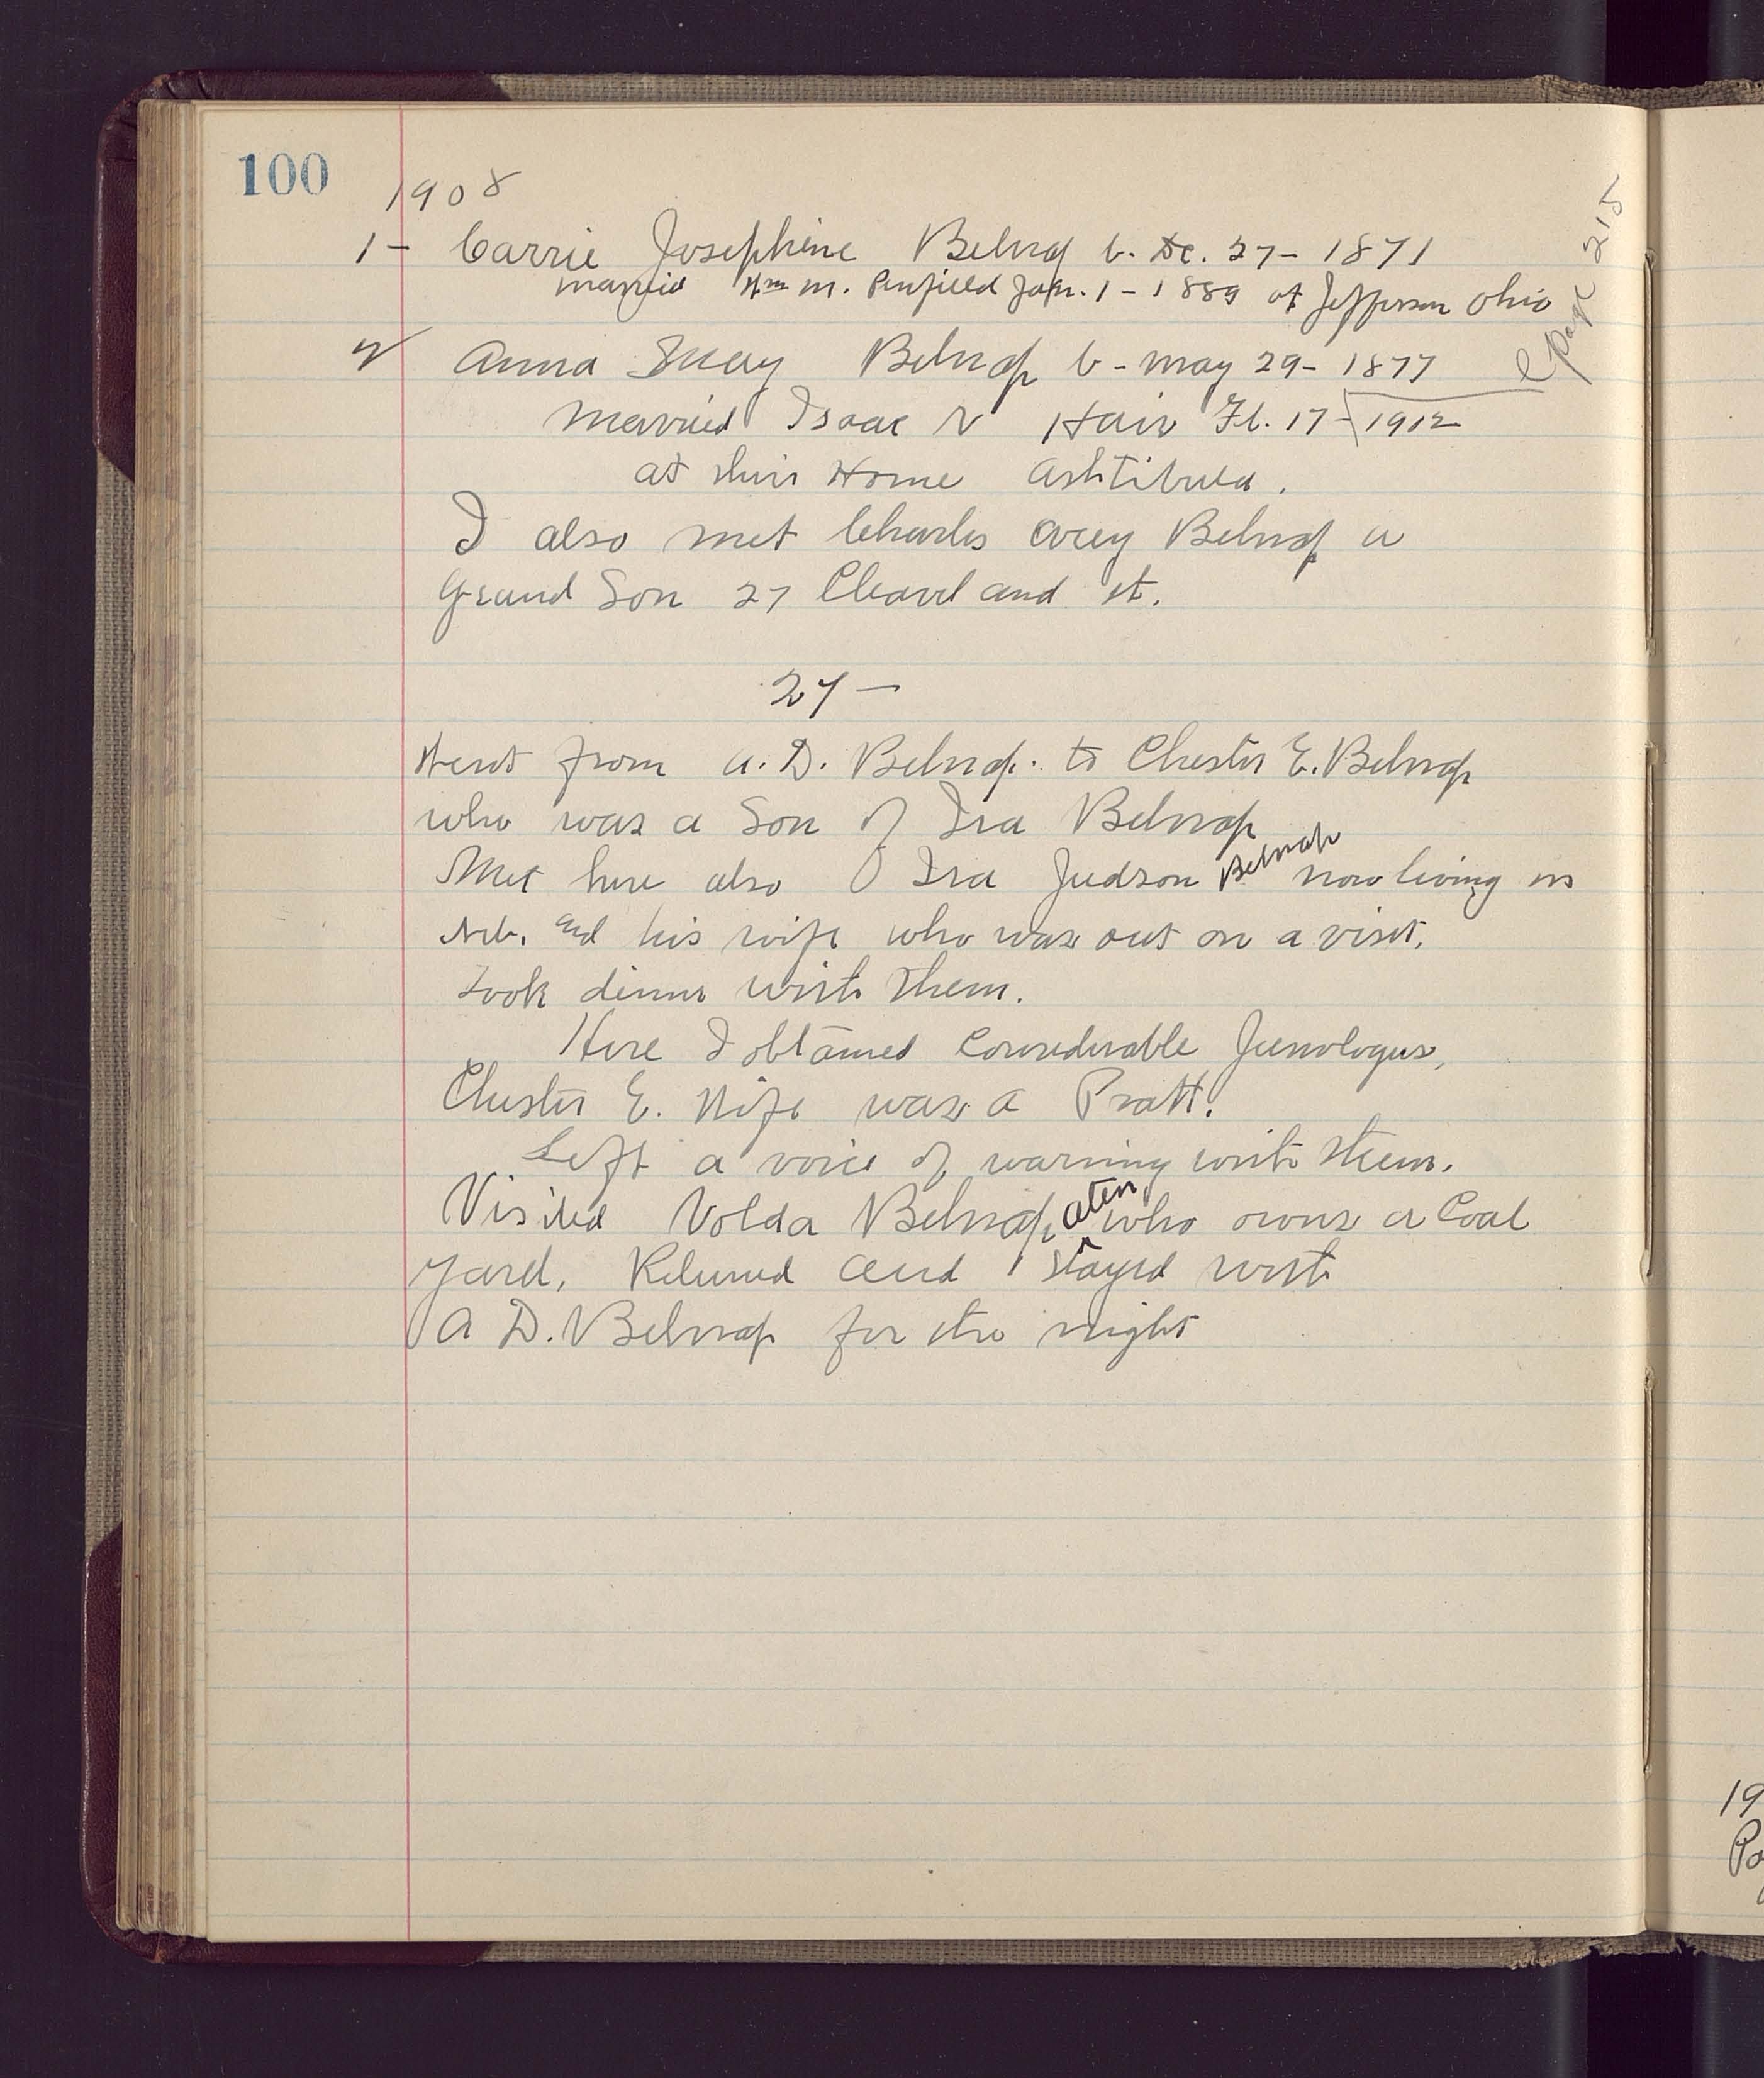 100
1908
1- Carrie Josephine Belnap b. De. 27- 1871
married Wm M. Penfield Jan. 1 - 1889 at Jefferson Ohio
2 Anna May Belnap b - May 29- 1877
Page 215
Married Isaac N Hair Fb. 17- 1912
at thir Home Ashtibula.
I also met Charles Arey Belnap a
Grand Son 27 Cleaveland st.
27 -
Went from A. D. Belnap. to Chester E. Belnap
who was a Son of Ira Belnap
Met here also Ira Judson Belnap now living in
Neb. and his wife who was out on a visit.
Took dinner with them.
Here I obtained Considerable
Chester E. Wife was a Pratt.
Left a voice of warning with them.
Visited Volda Belnap who owns a Coal
yard. Returned and stayed with
A D. Belnap for the night
19
Pa